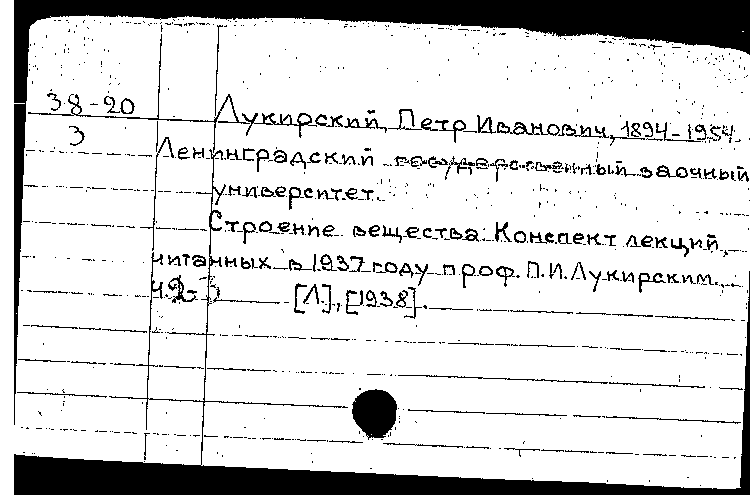 38-20
3
Лукирский, Петр Иванович, 1894-1954.
Ленинградский государственный заочный
университет.
Строение вещества: Конспект лекций,
читанных в 1937 году проф. П.И.Лукирским.
Ч.2-3 [Л.], [1938].